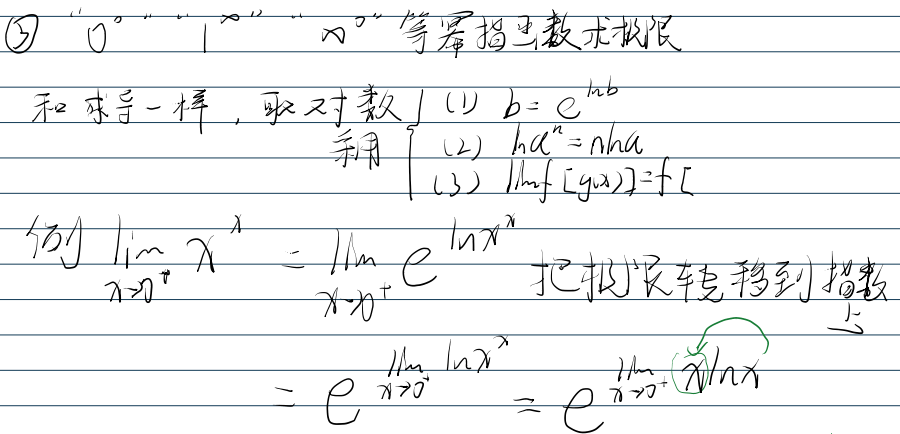 ③ “0⁰” “1^∞” “∞⁰” 等幂指函数求极限
和求导一样，取对数 (1) b = e^{lnb}
利用 (2) lnaⁿ = nlna
(3) limf[g(x)] = f[
例 lim_{x→0⁺} x^x = lim_{x→0⁺} e^{lnx^x} 把极限转移到指数上
= e^{lim_{x→0⁺} lnx^x} = e^{lim_{x→0⁺} xlnx}